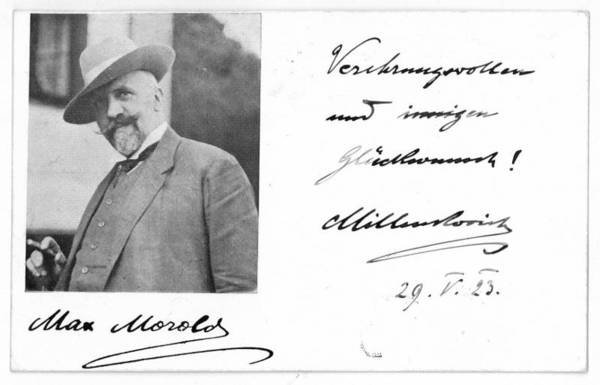 Verehrungsvollen
und innigen
Glückwunsch!
Millenkovich
29. V. 23.
Max Morold